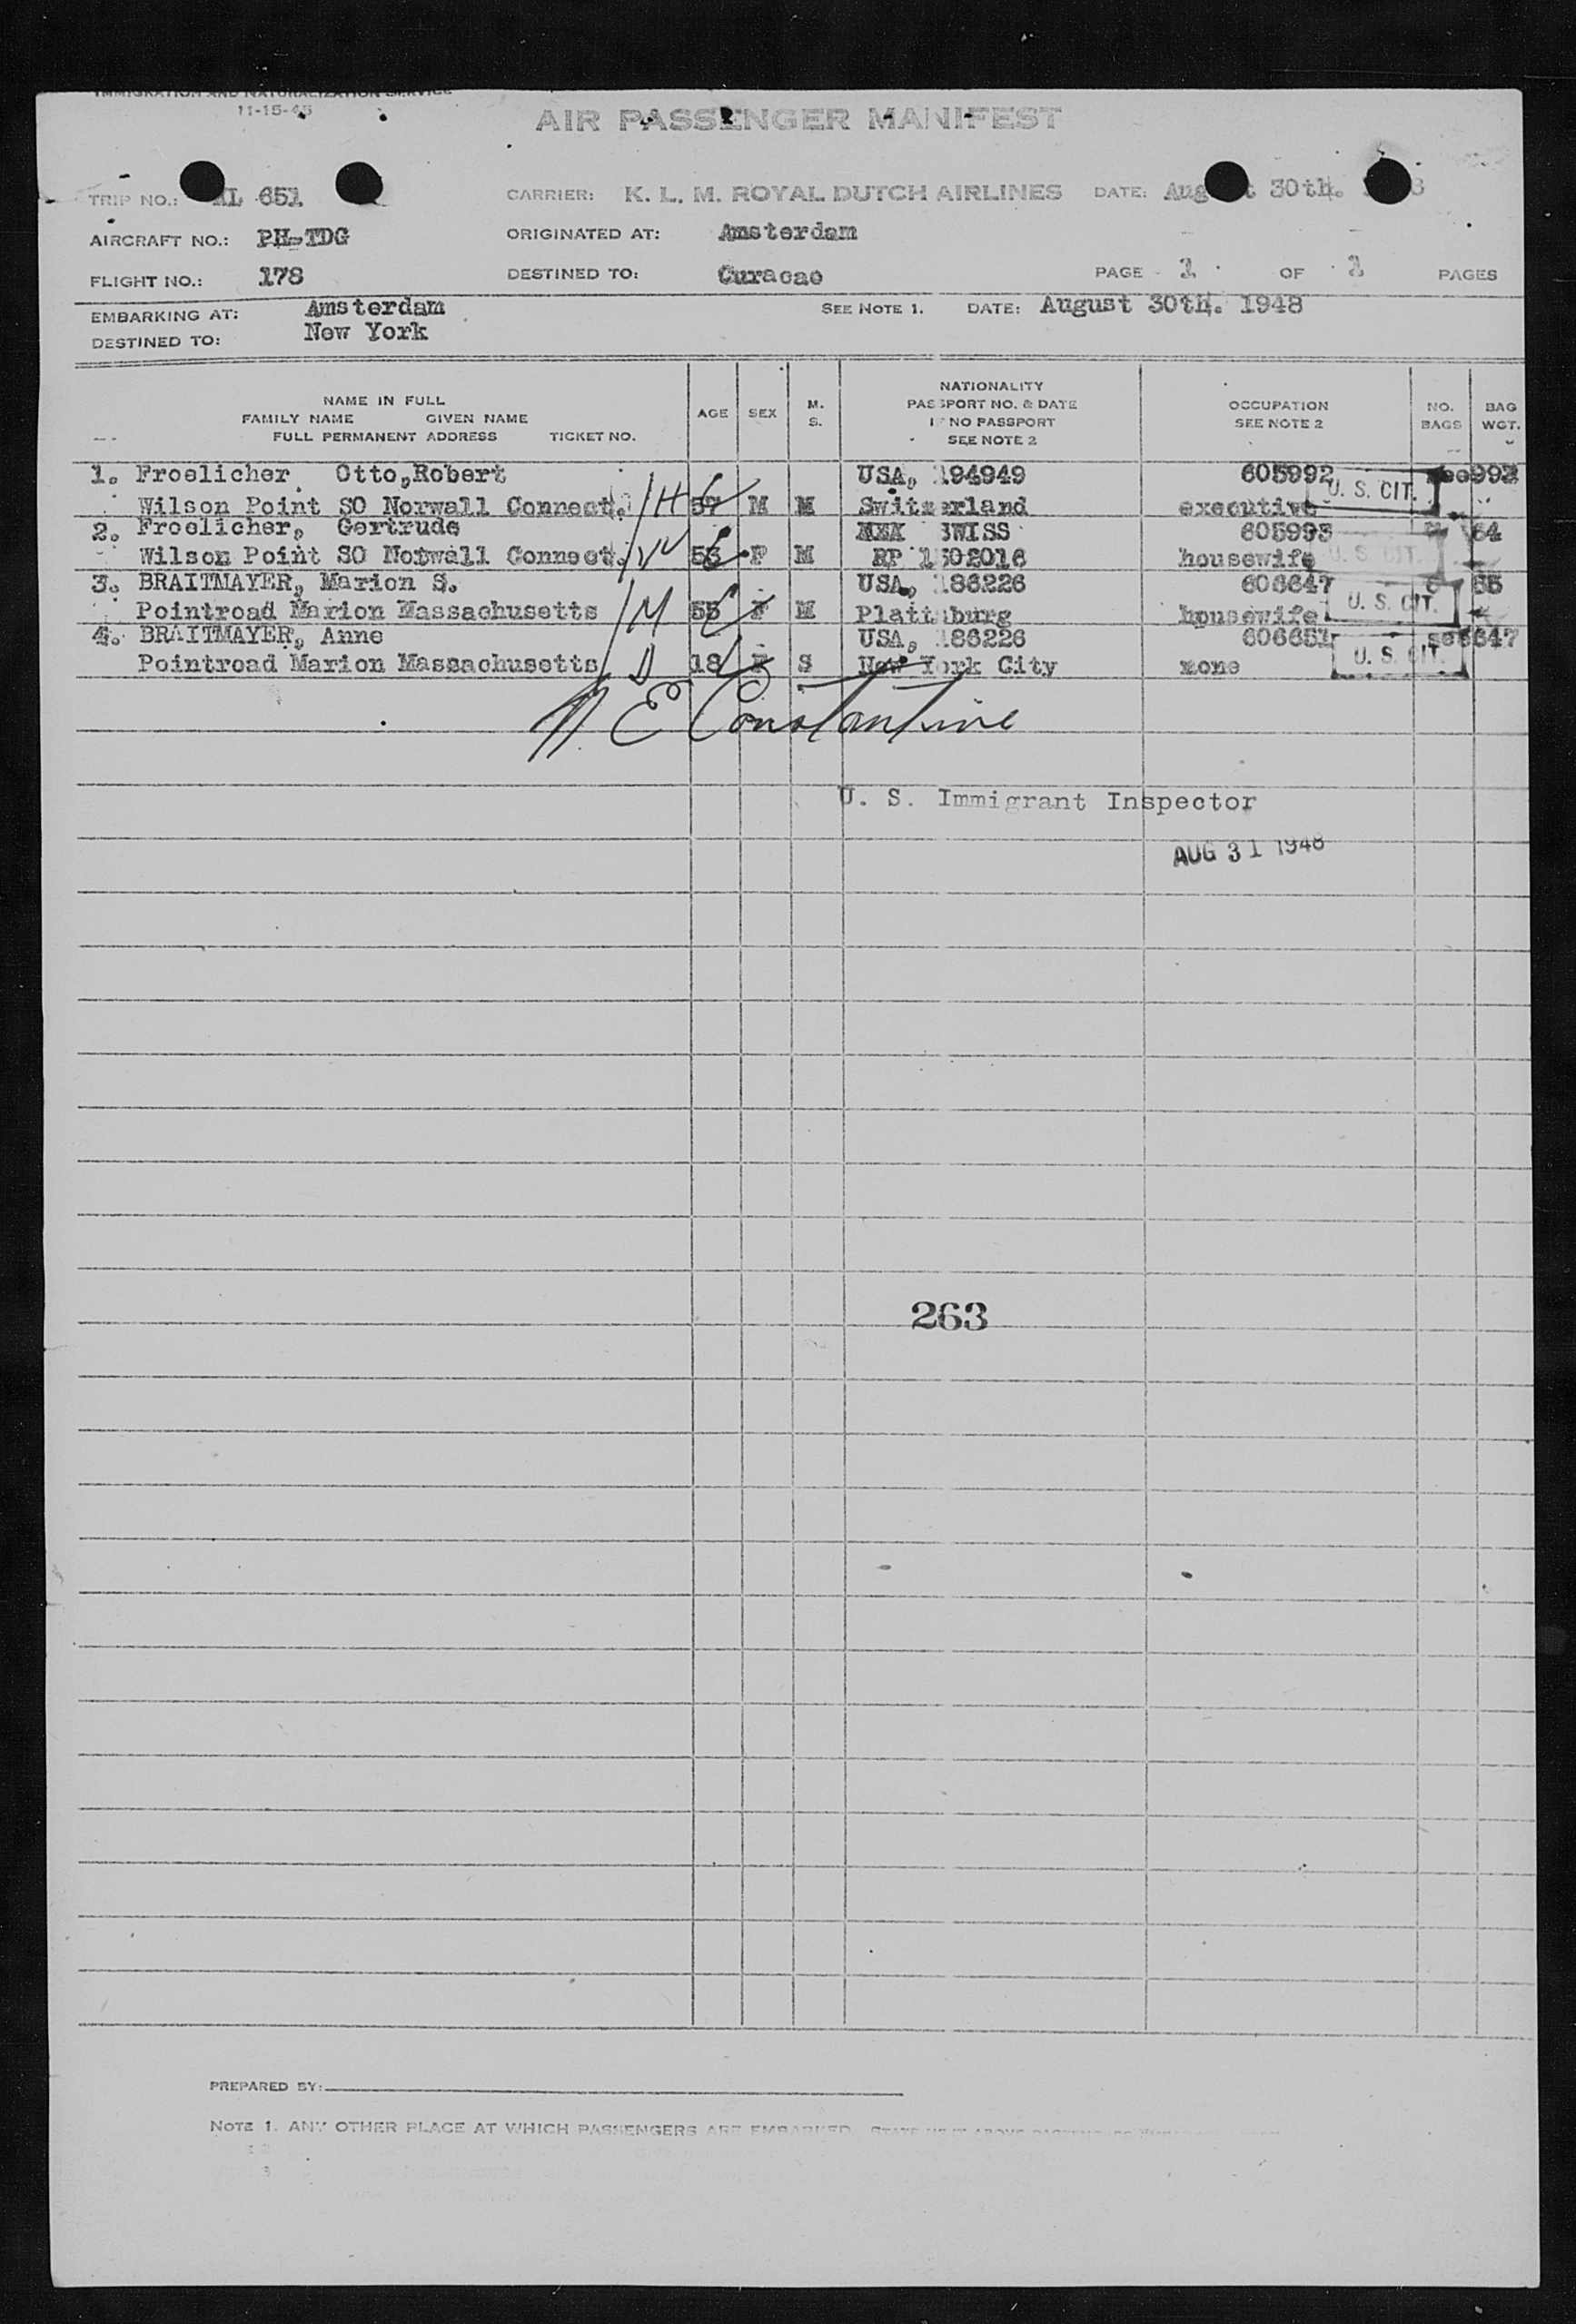 IMMIGRATION AND NATURALIZATION SERVICE
11-15-45
AIR PASSENGER MANIFEST
TRIP NO.: KL 651 CARRIER: K. L. M. ROYAL DUTCH AIRLINES DATE: August 30th.
AIRCRAFT NO.: PH-TDG ORIGINATED AT: Amsterdam
FLIGHT NO.: 178 DESTINED TO: Curacao PAGE 1 OF 1 PAGES
EMBARKING AT: Amsterdam SEE NOTE 1. DATE: August 30th. 1948
DESTINED TO: New York
NAME IN FULL
FAMILY NAME GIVEN NAME
FULL PERMANENT ADDRESS TICKET NO.
AGE SEX M. S.
NATIONALITY
PASSPORT NO. & DATE
IF NO PASSPORT
SEE NOTE 2
OCCUPATION
SEE NOTE 2
NO. BAGS
BAG WGT.
1. Froelicher Otto,Robert USA, 194949 605992 see993
Wilson Point SO Norwall Connect. H 57 M M Switzerland executive U. S. CIT.
2. Froelicher, Gertrude XXX SWISS 605993 64
Wilson Point SO Norwall Connect. W 53 F M RP 1502016 housewife U. S. CIT.
3. BRAITMAYER, Marion S. USA, 186226 606647 65
Pointroad Marion Massachusetts M 55 F M Plattsburg housewife U. S. CIT.
4. BRAITMAYER, Anne USA, 186226 606651 see647
Pointroad Marion Massachusetts D 18 F S New York City none U. S. CIT.
N. E Constantine
U. S. Immigrant Inspector
AUG 31 1948
263
PREPARED BY:
NOTE 1. ANY OTHER PLACE AT WHICH PASSENGERS ARE EMBARKED